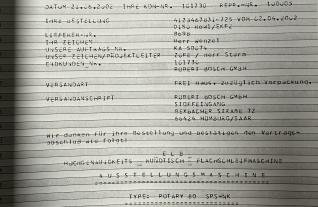 DATUM 21.06.2002 IHRE KDN-NR. 161730 REPP.-NR. 100003
IHRE BESTELLUNG VOM 02.04.2002
LIEFERER-NR. 8698
IHR ZEICHEN Herr Wenzel
UNSERE AUFTRAGS-NR. KA 50074
UNSER ZEICHEN/PROJEKTLEITER / Herr Sturm
ENDKUNDEN-NR. 161730
ROBERT BOSCH GMBH
VERSANDART FREI Haus, zuzüglich Verpackung.
VERSANDANSCHRIFT ROBERT BOSCH GMBH
STOFFEINGANG
BEXBACHER STRAßE 72
66424 HOMBURG/SAAR
Wir danken für Ihre Bestellung und bestätigen den Vertrags-
abschluß wie folgt:
E L B
HOCHGENAUIGKEITS - RUNDTISCH - FLACHSCHLEIFMASCHINE
A U S S T E L L U N G S M A S C H I N E
TYPE: ROTARY 80 SPS-NK